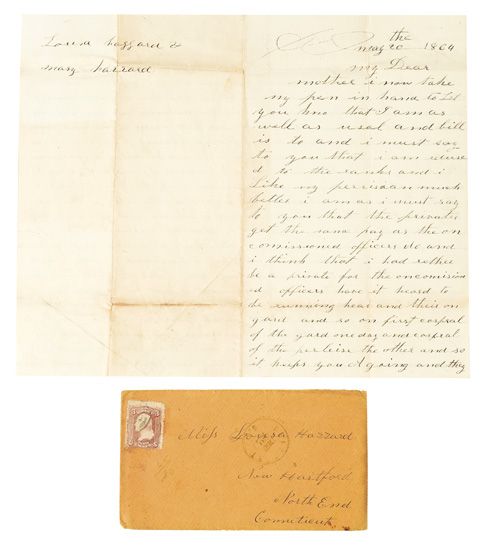 Louisa hazzard &
mary hazzard
the
may 20 1864
my Dear
mother i now take
my pen in hand to Let
you kno that I am as
well as usal and bill
is to and i must say
to you that i am reduse
d to the ranks and i
Like my persisan much
better i am as i must say
to you that the privates
get the same pay as the on
comissioned officers do and
i think that i had rether
be a private for the oncomision
ed officers have it heard to
do running hear and their on
gard and so on first corpral
of the gard one day and corpral
of the perliese the other and so
it keeps you A going and they
Miss Lovisa Hazzard
New Hartford
North End
Conneticut